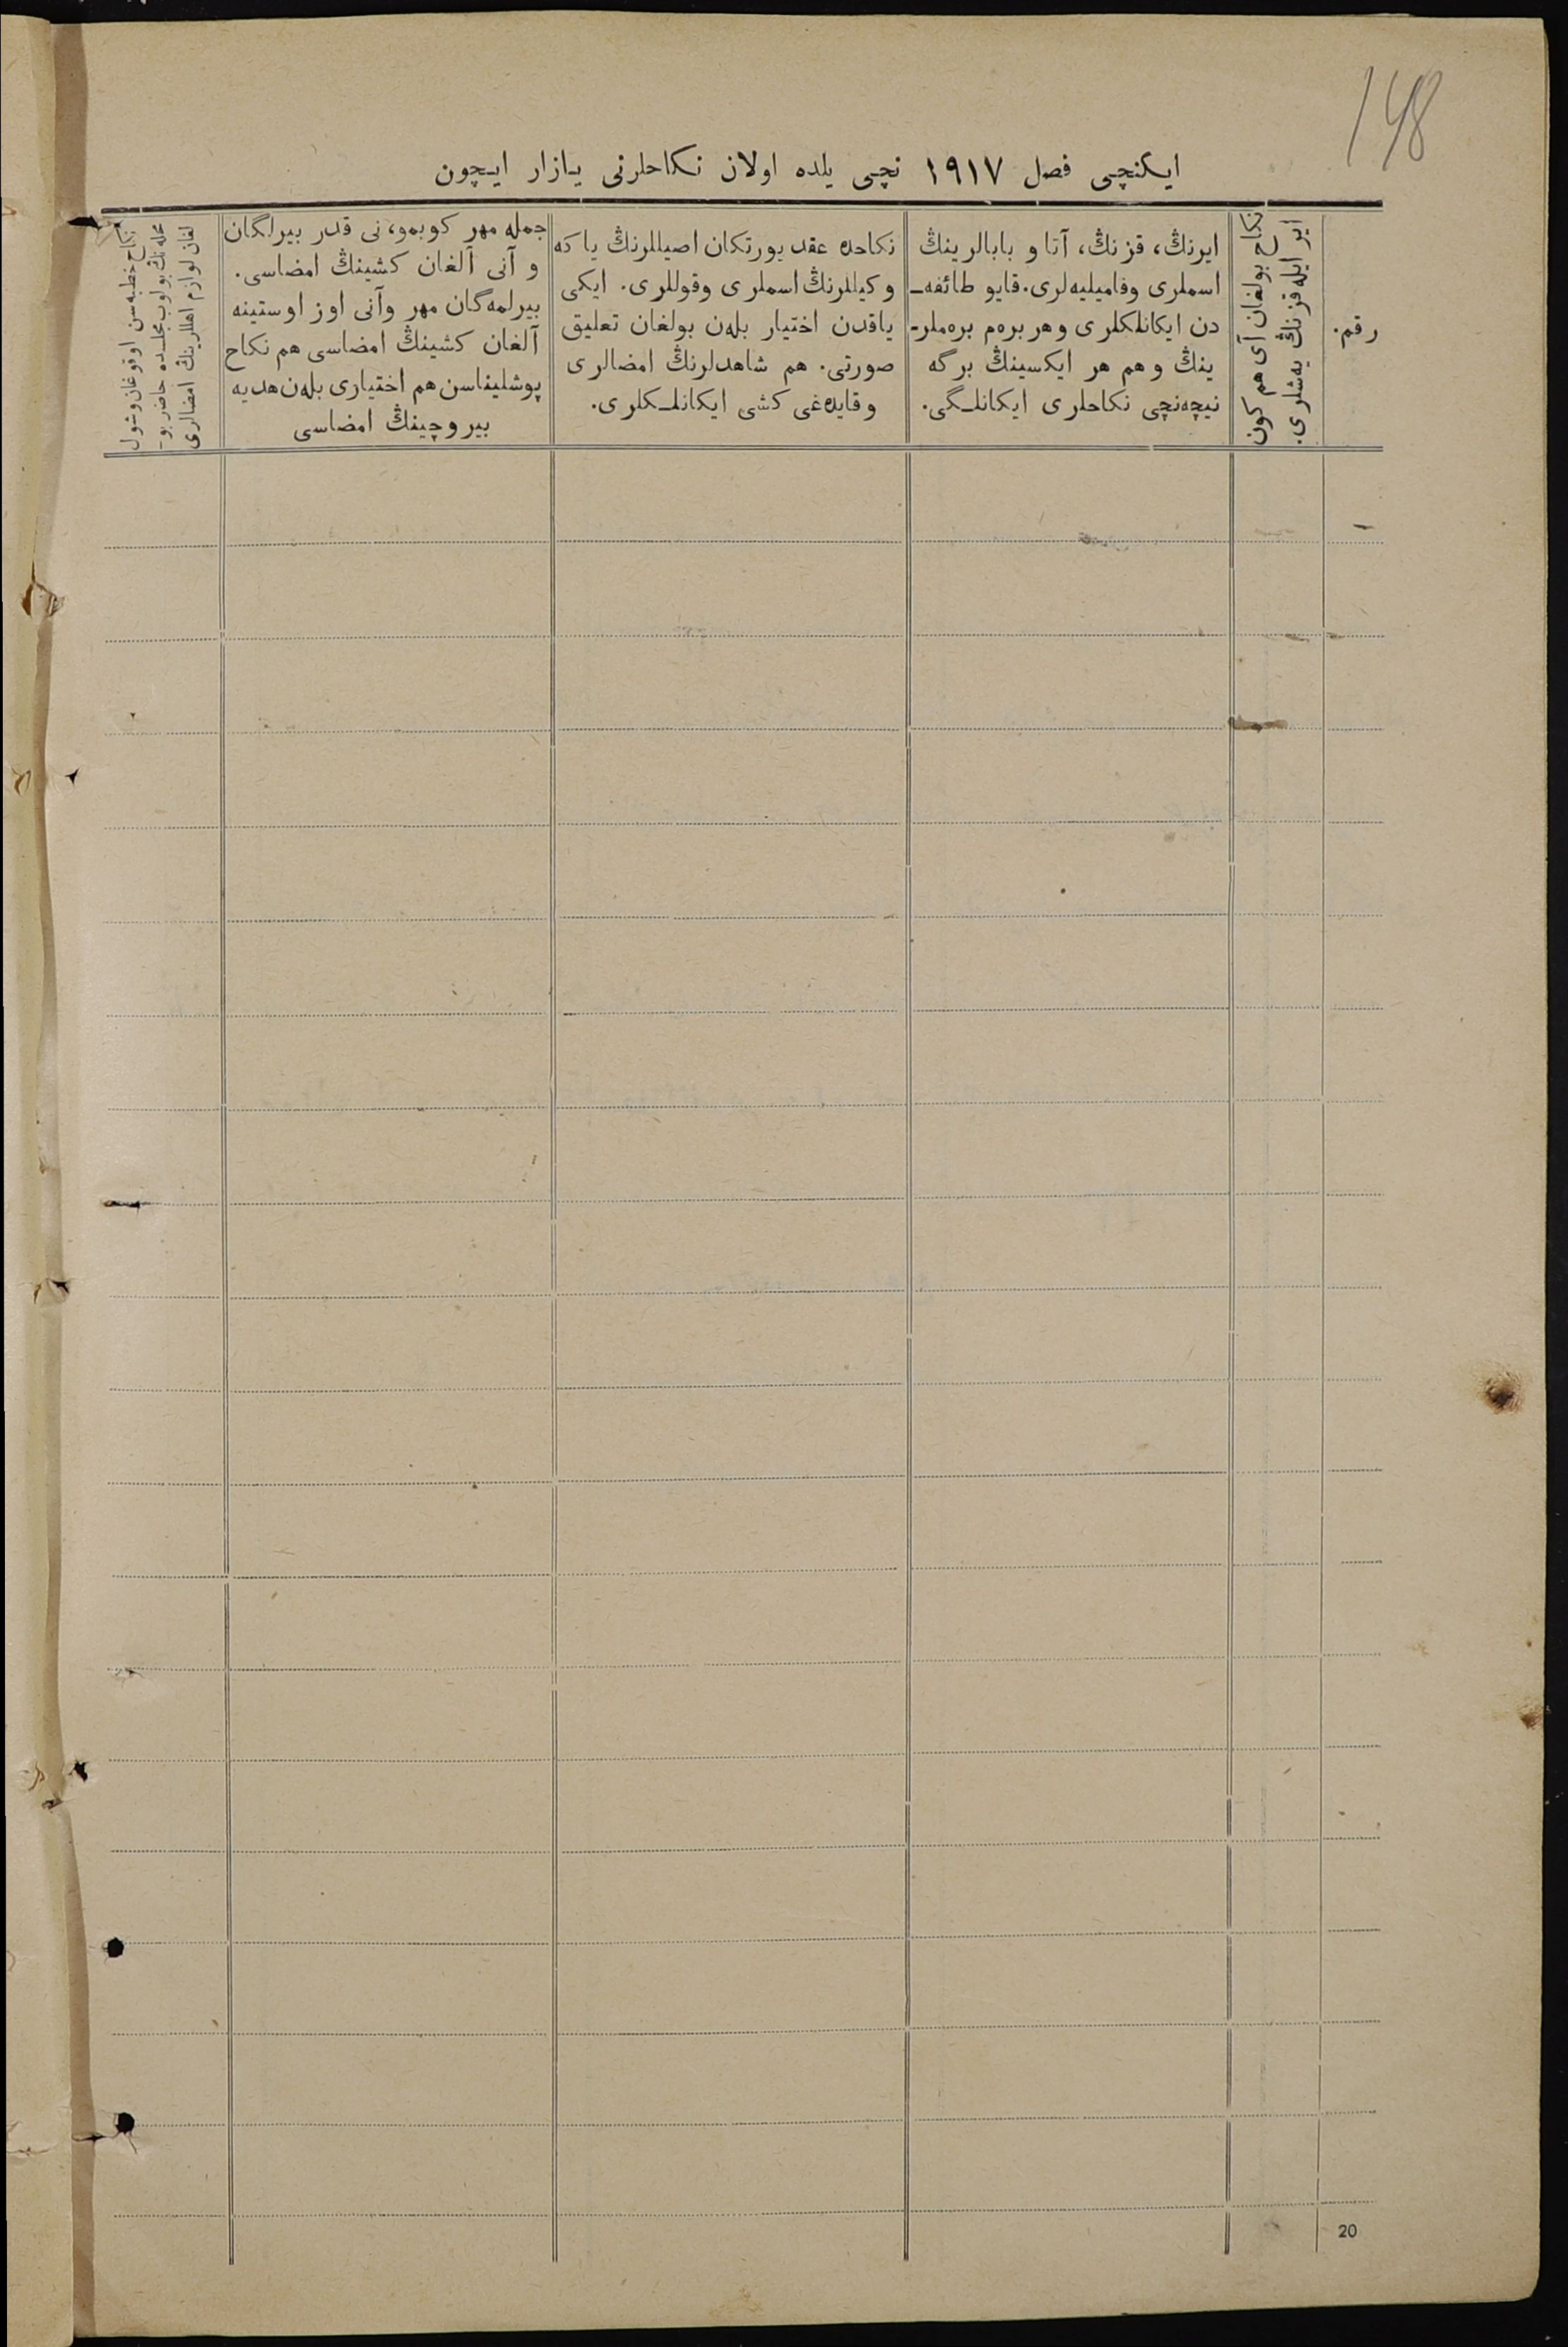 148
ایکنچی فصل ۱۹۱۷ نچی یلده اولان نکاحلرنی یازار ایچون
رقم.
نکاح بولغان آی هم کون
ایر ایله قزنڭ یه‌شلری.
ایرنڭ، قزنڭ، آتا و بابالرینڭ
اسملری وفامیلیه‌لری. قایو طائفه‌ـ
دن ایکانلکلری و هر بره‌م بره‌ملر-
ینڭ و هم هر ایکسینڭ برگه
نیچه‌نچی نکاحلری ایکانلـگی.
نکاحده عقد یورتکان اصیللرنڭ یا که
وکیللرنڭ اسملری وقوللری. ایکی
یاقدن اختیار بله‌ن بولغان تعلیق
صورتی. هم شاهدلرنڭ امضالری
وقایده‌غی کشی ایکانلـکلری.
جمله مهر کوبمو، نی قدر بیرلگان
و آنی آلغان کشینڭ امضاسی.
بیرلمه‌گان مهر وآنی اوز اوستینه
آلغان کشینڭ امضاسی هم نکاح
پوشلیناسن هم اختیاری بله‌ن هدیه
بیروچینڭ امضاسی
نکاح خطبه‌سن اوقوغان وشول
محله‌نڭ بولوب مجلسده حاضر بو-
لغان لوازم اهللرینڭ امضالری
20